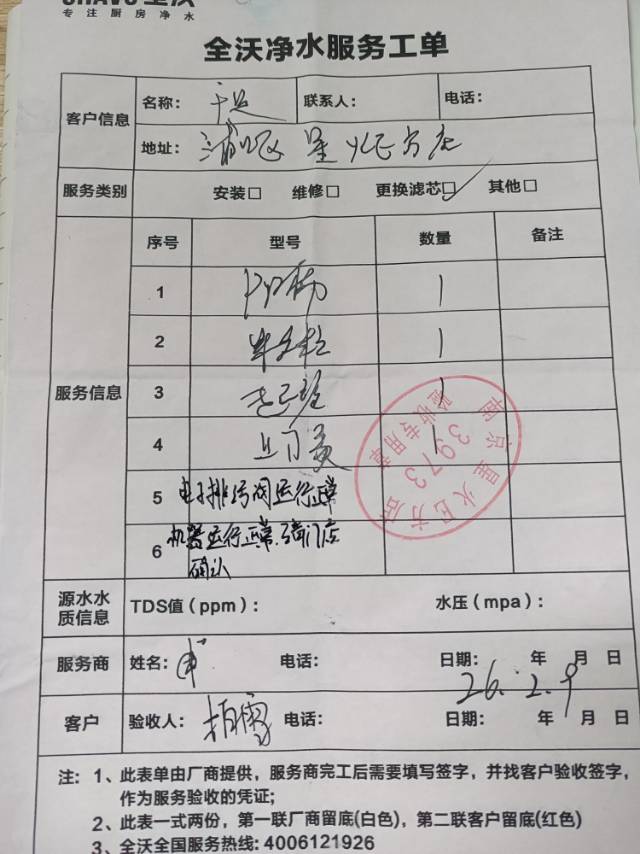 专注厨房净水
全沃净水服务工单
客户信息
名称： 联系人： 电话：
地址：浦口区星火巴方店
服务类别 安装□ 维修□ 更换滤芯□✓ 其他□
服务信息
序号 型号 数量 备注
1 PP棉 1
2 1
3 1
4 上门费 1
5 电子排污阀运行正常
6 机器运行正常.请门店
确认
南京星火巴方店
3973
验收专用章
源水水质信息 TDS值（ppm）： 水压（mpa）：
服务商 姓名： 电话： 日期： 年 月 日
26. 2. 9
客户 验收人： 电话： 日期： 年 月 日
注：1、此表单由厂商提供，服务商完工后需要填写签字，并找客户验收签字，
作为服务验收的凭证；
2、此表一式两份，第一联厂商留底(白色)，第二联客户留底(红色)
3、全沃全国服务热线: 4006121926